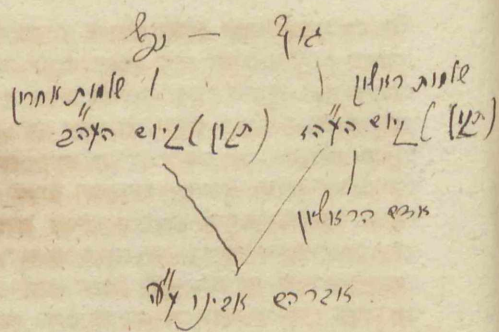 גוף — נפש
שלמות ראשון שלמות אחרון
(תקון) קיום העה"ז (תקון) קיום העה"ב
אדם הראשון
אברהם אבינו ע"ה